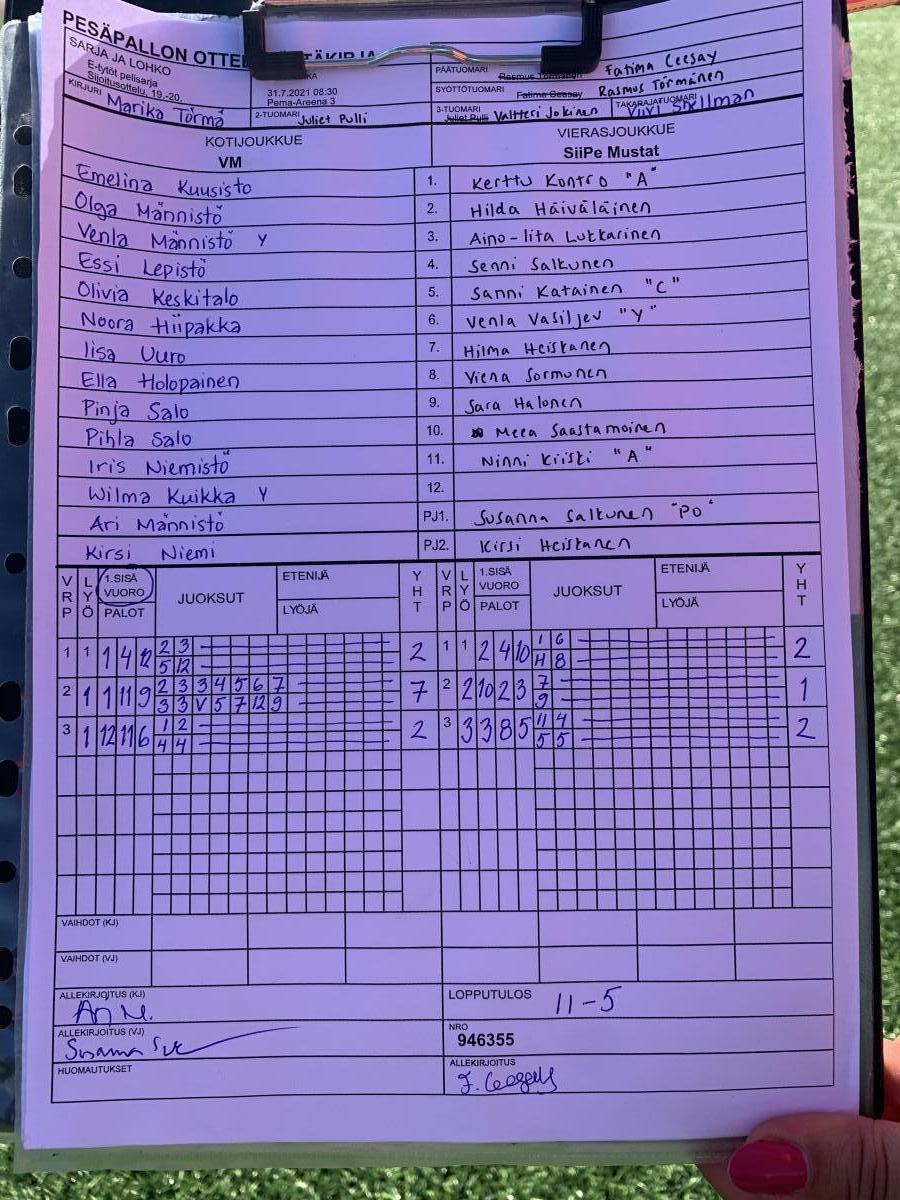 PESÄPALLON OTTE
SARJA JA LOHKO
E-tytöt pelisarja
Sijoitusottelu, 19.-20.
31.7.2021 08:30
Pema-Areena 3
PÄÄTUOMARI Rasmus Törmänen Fatima Ceesay
SYÖTTÖTUOMARI Fatima Ceesay Rasmus Törmänen
KIRJURI Marika Törmä
2-TUOMARI Juliet Pulli
3-TUOMARI Juliet Pulli Valtteri Jokinen
TAKARAJATUOMARI Viivi Snellman
KOTIJOUKKUE VIERASJOUKKUE
VM SiiPe Mustat
Emelina Kuusisto 1. Kerttu Kontro "A"
Olga Männistö 2. Hilda Häiväläinen
Venla Männistö Y 3. Aino-Iita Lukkarinen
Essi Lepistö 4. Senni Salkunen
Olivia Keskitalo 5. Sanni Katainen "C"
Noora Hiipakka 6. Venla Vasiljev "Y"
Iisa Uuro 7. Hilma Heiskanen
Ella Holopainen 8. Viena Sormunen
Pinja Salo 9. Sara Halonen
Pihla Salo 10. Meea Saastamoinen
Iris Niemistö 11. Ninni Kiiski "A"
Wilma Kuikka Y 12.
Ari Männistö PJ1. Susanna Salkunen "PO"
Kirsi Niemi PJ2. Kirsi Heiskanen
VRP LYÖ 1.SISÄ VUORO PALOT JUOKSUT ETENIJÄ LYÖJÄ YHT VRP LYÖ 1.SISÄ VUORO PALOT JUOKSUT ETENIJÄ LYÖJÄ YHT
1 1 1 4 12 2 3 2 1 1 2 4 10 1 6 2
5 12 H 8
2 1 1 11 9 2 3 3 4 5 6 7 7 2 2 10 2 3 7 1
3 3 V 5 7 12 9 9
3 1 12 11 6 1 2 2 3 3 3 8 5 11 4 2
4 4 5 5
VAIHDOT (KJ)
VAIHDOT (VJ)
ALLEKIRJOITUS (KJ)
LOPPUTULOS 11-5
ALLEKIRJOITUS (VJ)
NRO
946355
HUOMAUTUKSET
ALLEKIRJOITUS